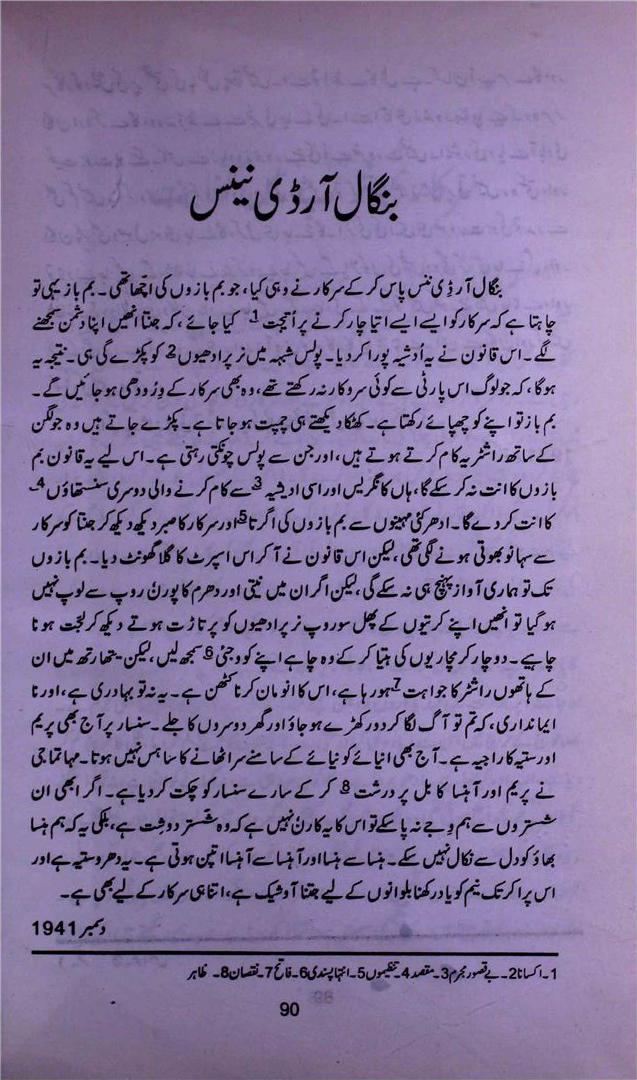 بنگال آرڈی نینس
بنگال آرڈی ننس پاس کر کے سرکار نے وہی کیا، جو بم بازوں کی اچّھا تھی۔ بم باز یہی تو
چاہتا ہے کہ سرکار کو ایسے ایسے اتیاچار کرنے پر اُتیجت 1 کیا جائے، کہ جنتا انھیں اپنا دشمن سمجھنے
لگے۔ اس قانون نے یہ اُدشیہ پورا کر دیا۔ پولس شبہہ میں نرپرادھیوں 2 کو پکڑے گی ہی۔ نتیجہ یہ
ہوگا، کہ جو لوگ اس پارٹی سے کوئی سروکار نہ رکھتے تھے، وہ بھی سرکار کے وِرودھی ہو جائیں گے۔
بم باز تو اپنے کو چھپائے رکھتا ہے۔ کھٹکا دیکھتے ہی چمپت ہو جاتا ہے۔ پکڑے جاتے ہیں وہ جو لگن
کے ساتھ راشٹریہ کام کرتے ہوتے ہیں، اور جن سے پولس چونکتی رہتی ہے۔ اس لیے یہ قانون بم
بازوں کا انت نہ کر سکے گا، ہاں کانگریس اور اسی ادیشیہ 3 سے کام کرنے والی دوسری سنستھاؤں 4۔
کا انت کر دے گا۔ ادھر کئی مہینوں سے بم بازوں کی اگرتا 5 اور سرکار کا صبر دیکھ دیکھ کر جنتا کو سرکار
سے سہانوبھوتی ہونے لگی تھی، لیکن اس قانون نے آ کر اس اسپرٹ کا گلا گھونٹ دیا۔ بم بازوں
تک تو ہماری آواز پہنچ ہی نہ سکے گی، لیکن اگر ان میں نیتی اور دھرم کا پورن روپ سے لوپ نہیں
ہو گیا تو انھیں اپنے کرتیوں کے پھل سوروپ نرپرادھیوں کو پرتاڑت ہوتے دیکھ کر لجّت ہونا
چاہیے۔ دو چار کرمچاریوں کی ہتیا کر کے وہ چاہے اپنے کو وجئی 6 سمجھ لیں، لیکن یتھارتھ میں ان
کے ہاتھوں راشٹر کا جو اہت 7 ہو رہا ہے، اس کا انومان کرنا کٹھن ہے۔ یہ نہ تو بہادری ہے، اور نا
ایمانداری، کہ تم تو آگ لگا کر دور کھڑے ہو جاؤ اور گھر دوسروں کا جلے۔ سنسار پر آج بھی پریم
اور ستیہ کا راجیہ ہے۔ آج بھی انیائے کو نیائے کے سامنے سر اٹھانے کا ساہس نہیں ہوتا۔ مہاتما جی
نے پریم اور آہنسا کا بل پردرشت 8 کر کے سارے سنسار کو چکت کر دیا ہے۔ اگر ابھی ان
شستروں سے ہم وجے نہ پا سکے تو اس کا یہ کارن نہیں ہے کہ وہ شستر دوشت ہے، بلکی یہ کہ ہم ہنسا
بھاؤ کو دل سے نکال نہیں سکے۔ ہنسا سے ہنسا اور آہنسا سے آہنسا اتپن ہوتی ہے۔ یہ دھروستیہ ہے اور
اس پراکرتک نیم کو یاد رکھنا بلوانوں کے لیے جتنا آوشیک ہے، اتنا ہی سرکار کے لیے بھی ہے۔
دسمبر 1941
1۔ اکسانا 2۔ بے قصور مجرم 3۔ مقصد 4۔ تنظیموں 5۔ انتہا پسندی 6۔ فاتح 7۔ نقصان 8۔ ظاہر
90